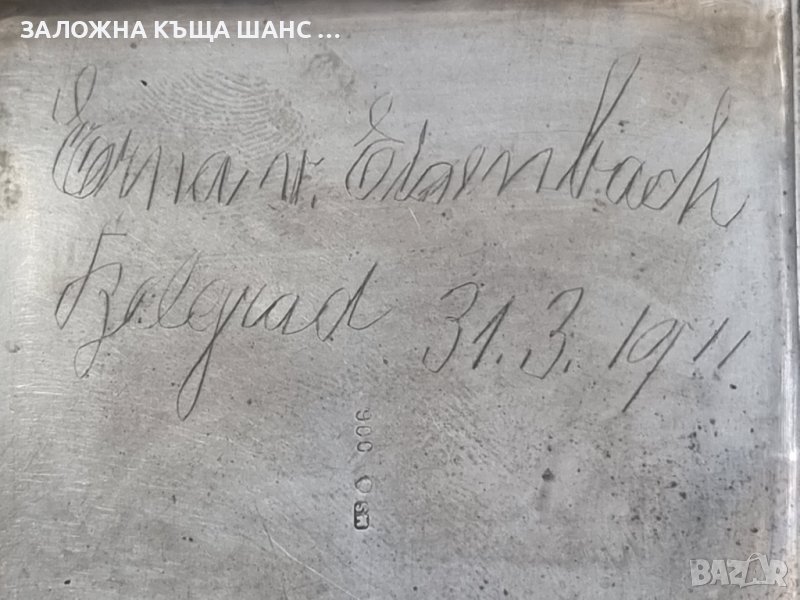 ЗАЛОЖНА КЪЩА ШАНС ...
Erna v. Eisenbach
Belgrad 31.3.1911
900
BAZAR